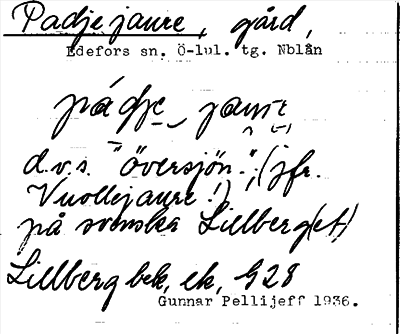 Padjejaure, gård,
Edefors sn. Ö-lul. tg. Nblän
pádje jaure
d.v.s. "översjön"; (jfr.
Vuollejaure!)
på svenska Lillberg(et)
Lillberg bek, ek, G28
Gunnar Pellijeff 1936.